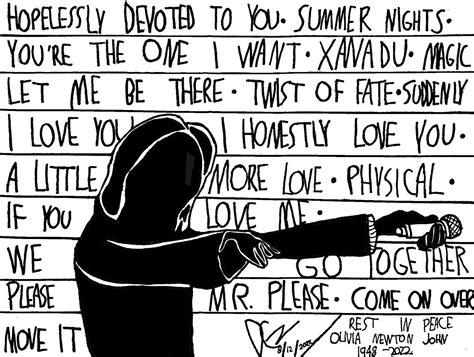 HOPELESSLY DEVOTED TO YOU • SUMMER NIGHTS •
YOU'RE THE ONE I WANT • XANADU • MAGIC
LET ME BE THERE • TWIST OF FATE • SUDDENLY
I LOVE YOU I HONESTLY LOVE YOU •
A LITTLE MORE LOVE • PHYSICAL •
IF YOU LOVE ME •
WE GO TOGETHER
PLEASE MR. PLEASE • COME ON OVER
MOVE IT 8/12/2022 REST IN PEACE
OLIVIA NEWTON JOHN
1948-2022